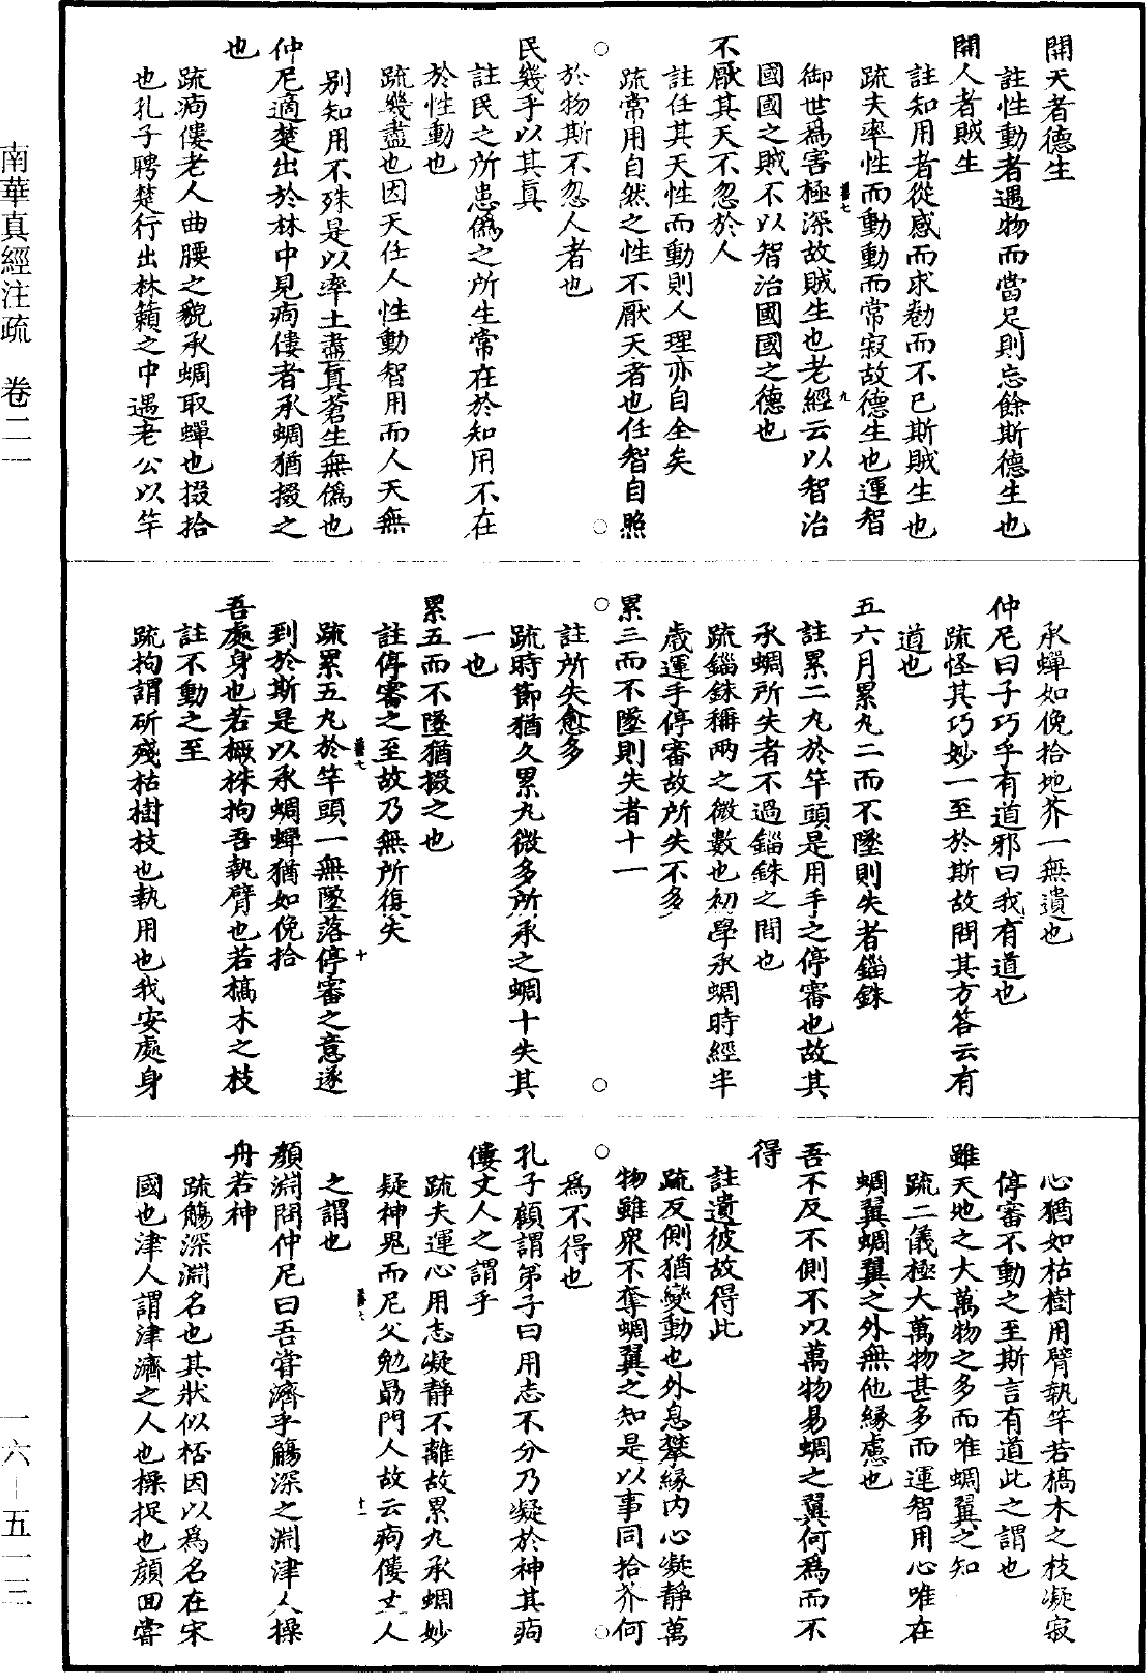 開天者德生
註性動者遇物而當足則忘餘斯德生也
開人者賊生
註知用者從感而求勌而不已斯賊生也
疏夫率性而動動而常寂故德生也運智
御世爲害極深故賊生也老經云以智治
國國之賊不以智治國國之德也
不厭其天不忽於人
註任其天性而動則人理亦自全矣
疏常用自然之性不厭天者也任智自照
於物斯不忽人者也
民幾乎以其眞
註民之所患僞之所生常在於知用不在
於性動也
疏幾盡也因天任人性動智用而人天無
別知用不殊是以率土盡眞蒼生無僞也
仲尼適楚出於林中見痀僂者承蜩猶掇之
也
疏痀僂老人曲腰之貌承蜩取蟬也掇拾
也孔子聘楚行出林籟之中遇老公以竿
承蟬如俛拾地芥一無遺也
仲尼曰子巧乎有道邪曰我有道也
疏怪其巧妙一至於斯故問其方答云有
道也
五六月累丸二而不墜則失者錙銖
註累二丸於竿頭是用手之停審也故其
承蜩所失者不過錙銖之間也
疏錙銖稱兩之微數也初學承蜩時經半
歲運手停審故所失不多
累三而不墜則失者十一
註所失愈多
疏時節猶久累丸微多所承之蜩十失其
一也
累五而不墜猶掇之也
註停審之至故乃無所復失
疏累五丸於竿頭一無墜落停審之意遂
到於斯是以承蜩蟬猶如俛拾
吾處身也若橛株拘吾執臂也若槁木之枝
註不動之至
疏拘謂斫殘枯樹枝也執用也我安處身
心猶如枯樹用臂執竿若槁木之枝凝寂
停審不動之至斯言有道此之謂也
雖天地之大萬物之多而唯蜩翼之知
疏二儀極大萬物甚多而運智用心唯在
蜩翼蜩翼之外無他緣慮也
吾不反不側不以萬物易蜩之翼何爲而不
得
註遺彼故得此
疏反側猶變動也外息攀緣內心凝靜萬
物雖衆不奪蜩翼之知是以事同拾芥何
爲不得也
孔子顧謂弟子曰用志不分乃凝於神其痀
僂丈人之謂乎
疏夫運心用志凝靜不離故累丸承蜩妙
疑神鬼而尼父勉勗門人故云痀僂丈人
之謂也
顏淵問仲尼曰吾嘗濟乎觴深之淵津人操
舟若神
疏觴深淵名也其狀似桮因以爲名在宋
國也津人謂津濟之人也操捉也顏回嘗
南華真經注疏　卷二一
一六—五一三